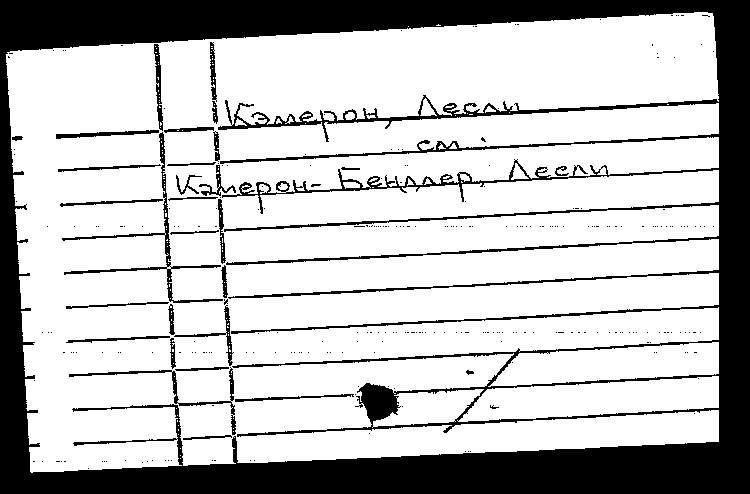 Кэмерон, Лесли
см.
Кэмерон-Бендлер, Лесли